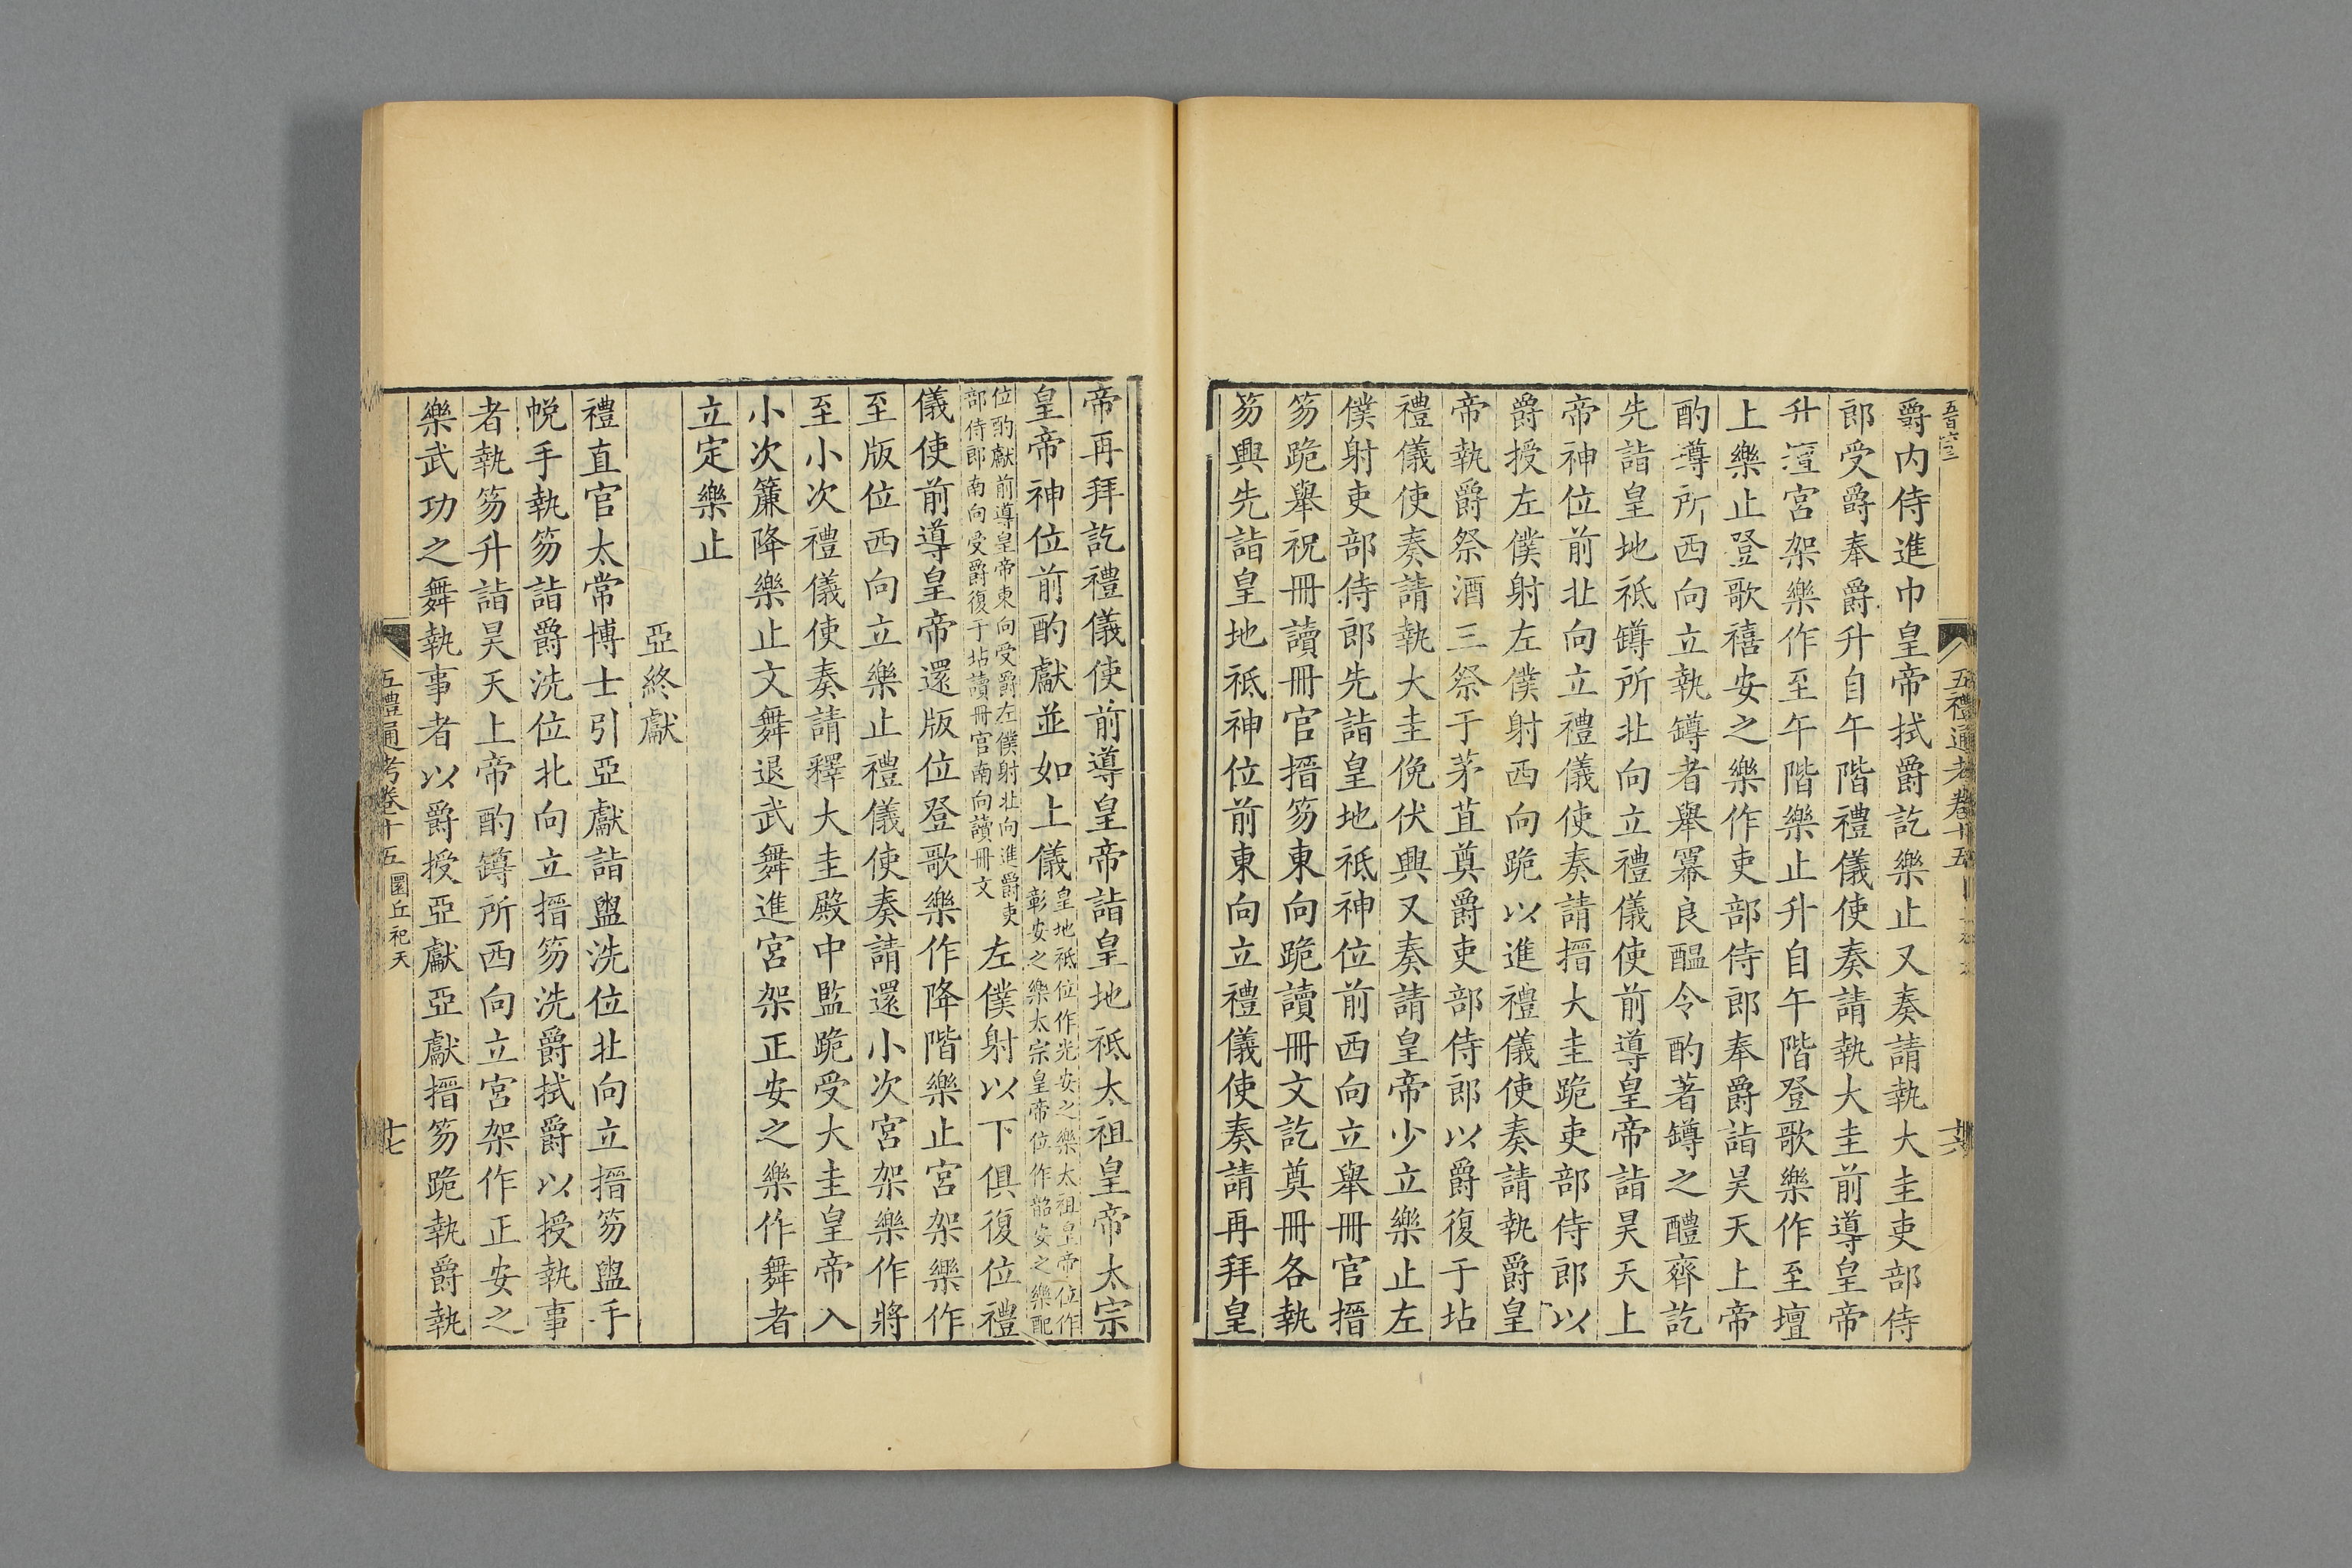 五禮通考卷十五
爵内侍進巾皇帝拭爵訖樂止又奏請執大圭吏部侍
郎受爵奉爵升自午階禮儀使奏請執大圭前導皇帝
升壇宮架樂作至午階樂止升自午階登歌樂作至壇
上樂止登歌禧安之樂作吏部侍郎奉爵詣昊天上帝
酌罇所西向立執罇者舉冪良醞令酌著罇之醴齊訖
先詣皇地祗罇所北向立禮儀使前導皇帝詣昊天上
帝神位前北向立禮儀使奏請搢大圭跪吏部侍郎以
爵授左僕射左僕射西向跪以進禮儀使奏請執爵皇
帝執爵祭酒三祭于茅苴奠爵吏部侍郎以爵復于坫
禮儀使奏請執大圭俛伏興又奏請皇帝少立樂止左
僕射吏部侍郎先詣皇地祗神位前西向立舉冊官搢
笏跪舉祝冊讀冊官搢笏東向跪讀冊文訖奠冊各執
笏興先詣皇地祗神位前東向立禮儀使奏請再拜皇
帝再拜訖禮儀使前導皇帝詣皇地祗太祖皇帝太宗
皇帝神位前酌獻並如上儀皇地祗位作光安之樂太祖皇帝位作
彰安之樂太宗皇帝位作韶安之樂配
位酌獻前導皇帝東向受爵左僕射北向進爵吏
部侍郎南向受爵復于坫讀冊官南向讀冊文
左僕射以下俱復位禮
儀使前導皇帝還版位登歌樂作降階樂止宮架樂作
至版位西向立樂止禮儀使奏請還小次宮架樂作將
至小次禮儀使奏請釋大圭殿中監跪受大圭皇帝入
小次簾降樂止文舞退武舞進宮架正安之樂作舞者
立定樂止
亞終獻
禮直官太常博士引亞獻詣盥洗位北向立搢笏盥手
帨手執笏詣爵洗位北向立搢笏洗爵拭爵以授執事
者執笏升詣昊天上帝酌罇所西向立宮架作正安之
樂武功之舞執事者以爵授亞獻亞獻搢笏跪執爵執
五禮通考卷十五 圜丘祀天
十七